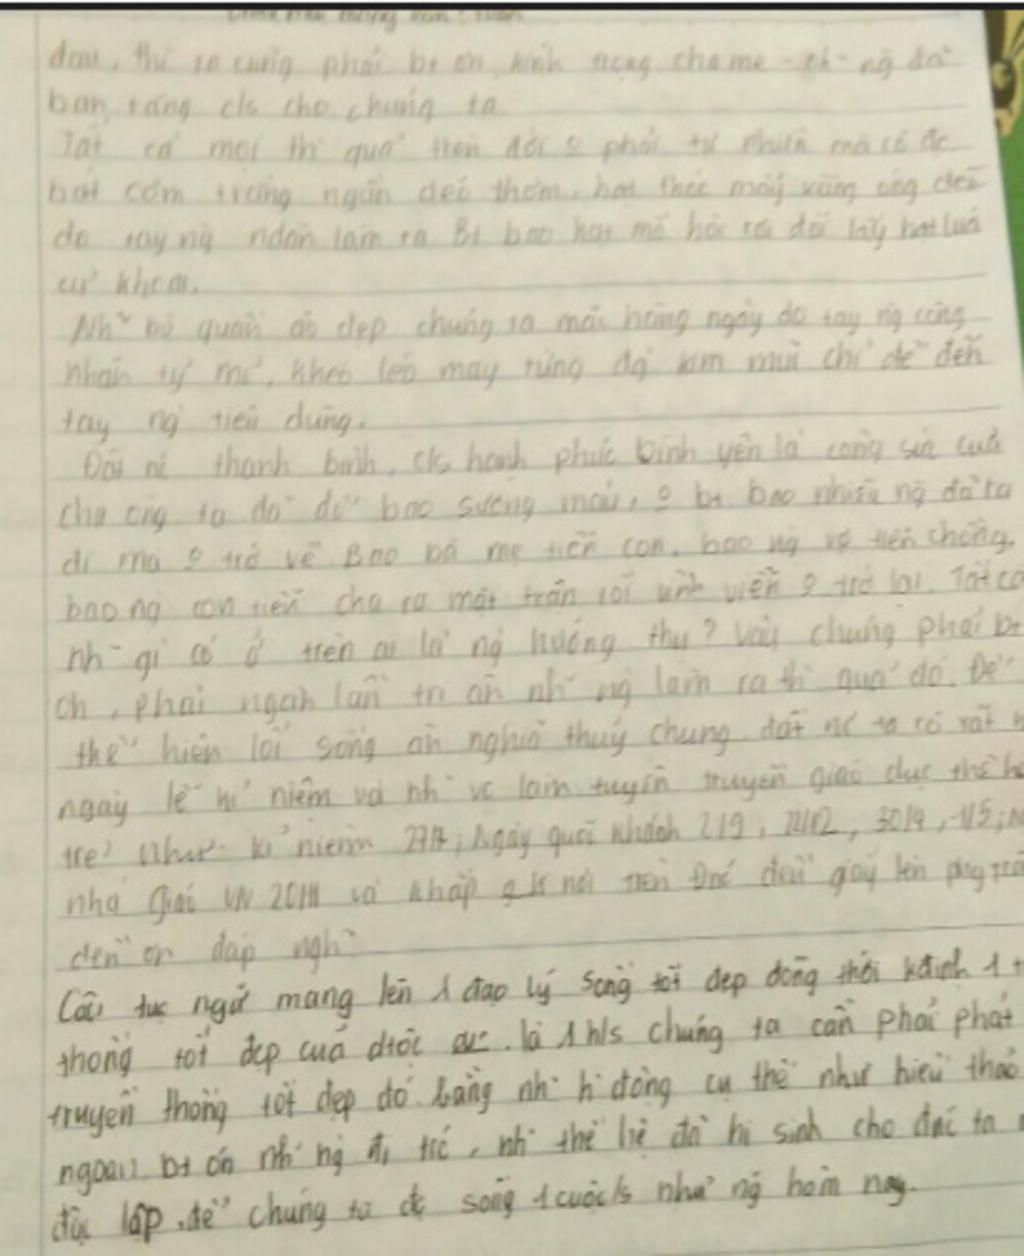 đâu, thì ta cũng phải bt ơn, kính trọng cha mẹ - nh~ ng đã
ban, tặng c/s cho chúng ta
Tất cả mọi th' quả trên đời o phải tự nhiên mà có đc
bát cơm trắng ngần dẻo thơm, hạt thóc mẩy vàng óng đều
do tay ng ndân làm ra Bt bao hạt mồ hôi rơi đổi lấy hạt lúa
củ khoai.
Nh~ bộ quần áo đẹp chúng ta mặc hàng ngày do tay ng công
nhân tỷ mỉ, khéo léo may từng đg kim mũi chỉ để đến
tay ng tiêu dùng.
Đất nc thanh bình, c/s hạnh phúc bình yên là công sức của
cha ông ta đã đổ bao xương máu, o bt bao nhiêu ng đã ra
đi mà o trở về Bao bà mẹ tiễn con, bao ng vợ tiễn chồng,
bao ng con tiễn cha ra mặt trận rồi vĩnh viễn o trở lại. Tất cả
nh~ gì có ở trên ai là ng hưởng thụ? Vậy chúng phải bt
ơn, phải ngoảnh lại tri ân nh~ ng làm ra th' quả đó. Để
thể hiện lối sống ân nghĩa thuỷ chung đất nc ta có rất
ngày lễ kỉ niệm và nh~ vc làm tuyên truyền giáo dục thế h
trẻ như: kỉ niệm 27/7; Ngày quốc khánh 2/9, 22/12, 30/4, 1/5;
nhà giáo VN 20/11 và khắp nơi trên Đnc đều giấy lên ptrg trào
đền ơn đáp ngh~
Câu tục ngữ mang lên 1 đạo lý sống tốt đẹp đồng thời kđịnh 1 t
thống tốt đẹp của dtộc. là 1 h/s chúng ta cần phải phát
truyền thống tốt đẹp đó bằng nh~ h`động cụ thể như hiếu thảo
ngoan, bt ơn nh~ ng đi trc, nh~ thế hệ đã hi sinh cho đnc ta
độc lập, để chúng ta đc sống 1 cuộc/s như ng hôm nay.